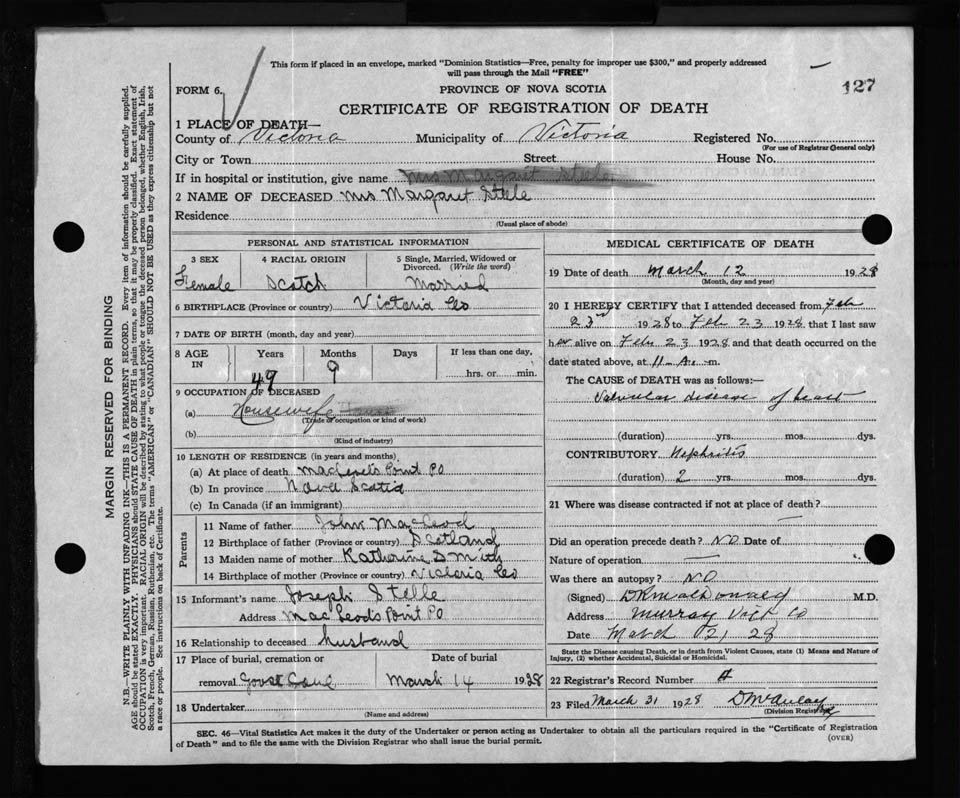 This form if placed in an envelope, marked "Dominion Statistics—Free, penalty for improper use $300," and properly addressed
will pass through the Mail "FREE"
127
FORM 6.
PROVINCE OF NOVA SCOTIA
CERTIFICATE OF REGISTRATION OF DEATH
1 PLACE OF DEATH—
County of Victoria Municipality of Victoria Registered No.
(For use of Registrar General only)
City or Town Street House No.
If in hospital or institution, give name Mrs Margaret Steele
2 NAME OF DECEASED Mrs Margaret Stele
Residence
(Usual place of abode)
PERSONAL AND STATISTICAL INFORMATION
3 SEX 4 RACIAL ORIGIN 5 Single, Married, Widowed or
Divorced. (Write the word)
Female Scotch Married
6 BIRTHPLACE (Province or country) Victoria Co
7 DATE OF BIRTH (month, day and year)
8 AGE IN Years Months Days If less than one day,
49 9 hrs. or min.
9 OCCUPATION OF DECEASED
(a) Housewife
(Trade or occupation or kind of work)
(b)
(Kind of industry)
10 LENGTH OF RESIDENCE (in years and months)
(a) At place of death MacLeods Point PO
(b) In province Nova Scotia
(c) In Canada (if an immigrant)
Parents
11 Name of father John MacLeod
12 Birthplace of father (Province or country) Scotland
13 Maiden name of mother Katherine Smith
14 Birthplace of mother (Province or country) Victoria Co
15 Informant's name Joseph Stelle
Address MacLeods Point PO
16 Relationship to deceased husband
17 Place of burial, cremation or Date of burial
removal March 14 1928
18 Undertaker
(Name and address)
MEDICAL CERTIFICATE OF DEATH
19 Date of death March 12 1928
(Month, day and year)
20 I HEREBY CERTIFY that I attended deceased from Feb
23rd 1928 to Feb 23 1928, that I last saw
her alive on Feb 23 1928 and that death occurred on the
date stated above, at 11 A. m.
The CAUSE of DEATH was as follows:—
Valvular disease of heart
(duration) yrs. mos. dys.
CONTRIBUTORY Nephritis
(duration) 2 yrs. mos. dys.
21 Where was disease contracted if not at place of death? —
Did an operation precede death? NO Date of
Nature of operation —
Was there an autopsy? NO
(Signed) DK MacDonald M.D.
Address Murray Vict Co
Date March 12, 28
State the Disease causing Death, or in death from Violent Causes, state (1) Means and Nature of
Injury, (2) whether Accidental, Suicidal or Homicidal.
22 Registrar's Record Number 4
23 Filed March 31 1928 D McAulay
(Division Registrar)
SEC. 46—Vital Statistics Act makes it the duty of the Undertaker or person acting as Undertaker to obtain all the particulars required in the "Certificate of Registration
of Death" and to file the same with the Division Registrar who shall issue the burial permit.
(OVER)
MARGIN RESERVED FOR BINDING
N.B.—WRITE PLAINLY WITH UNFADING INK—THIS IS A PERMANENT RECORD. Every item of information should be carefully supplied.
AGE should be stated EXACTLY. PHYSICIANS should STATE CAUSE OF DEATH in plain terms, so that it may be properly classified. Exact statement of
OCCUPATION is very important. RACIAL ORIGIN will be described by stating to what people or tongue the deceased person belonged, whether English, Irish,
Scotch, French, German, Russian, Ruthenian, etc. The terms "AMERICAN" or "CANADIAN" SHOULD NOT BE USED as they express citizenship but not
a race or people. See instructions on back of Certificate.